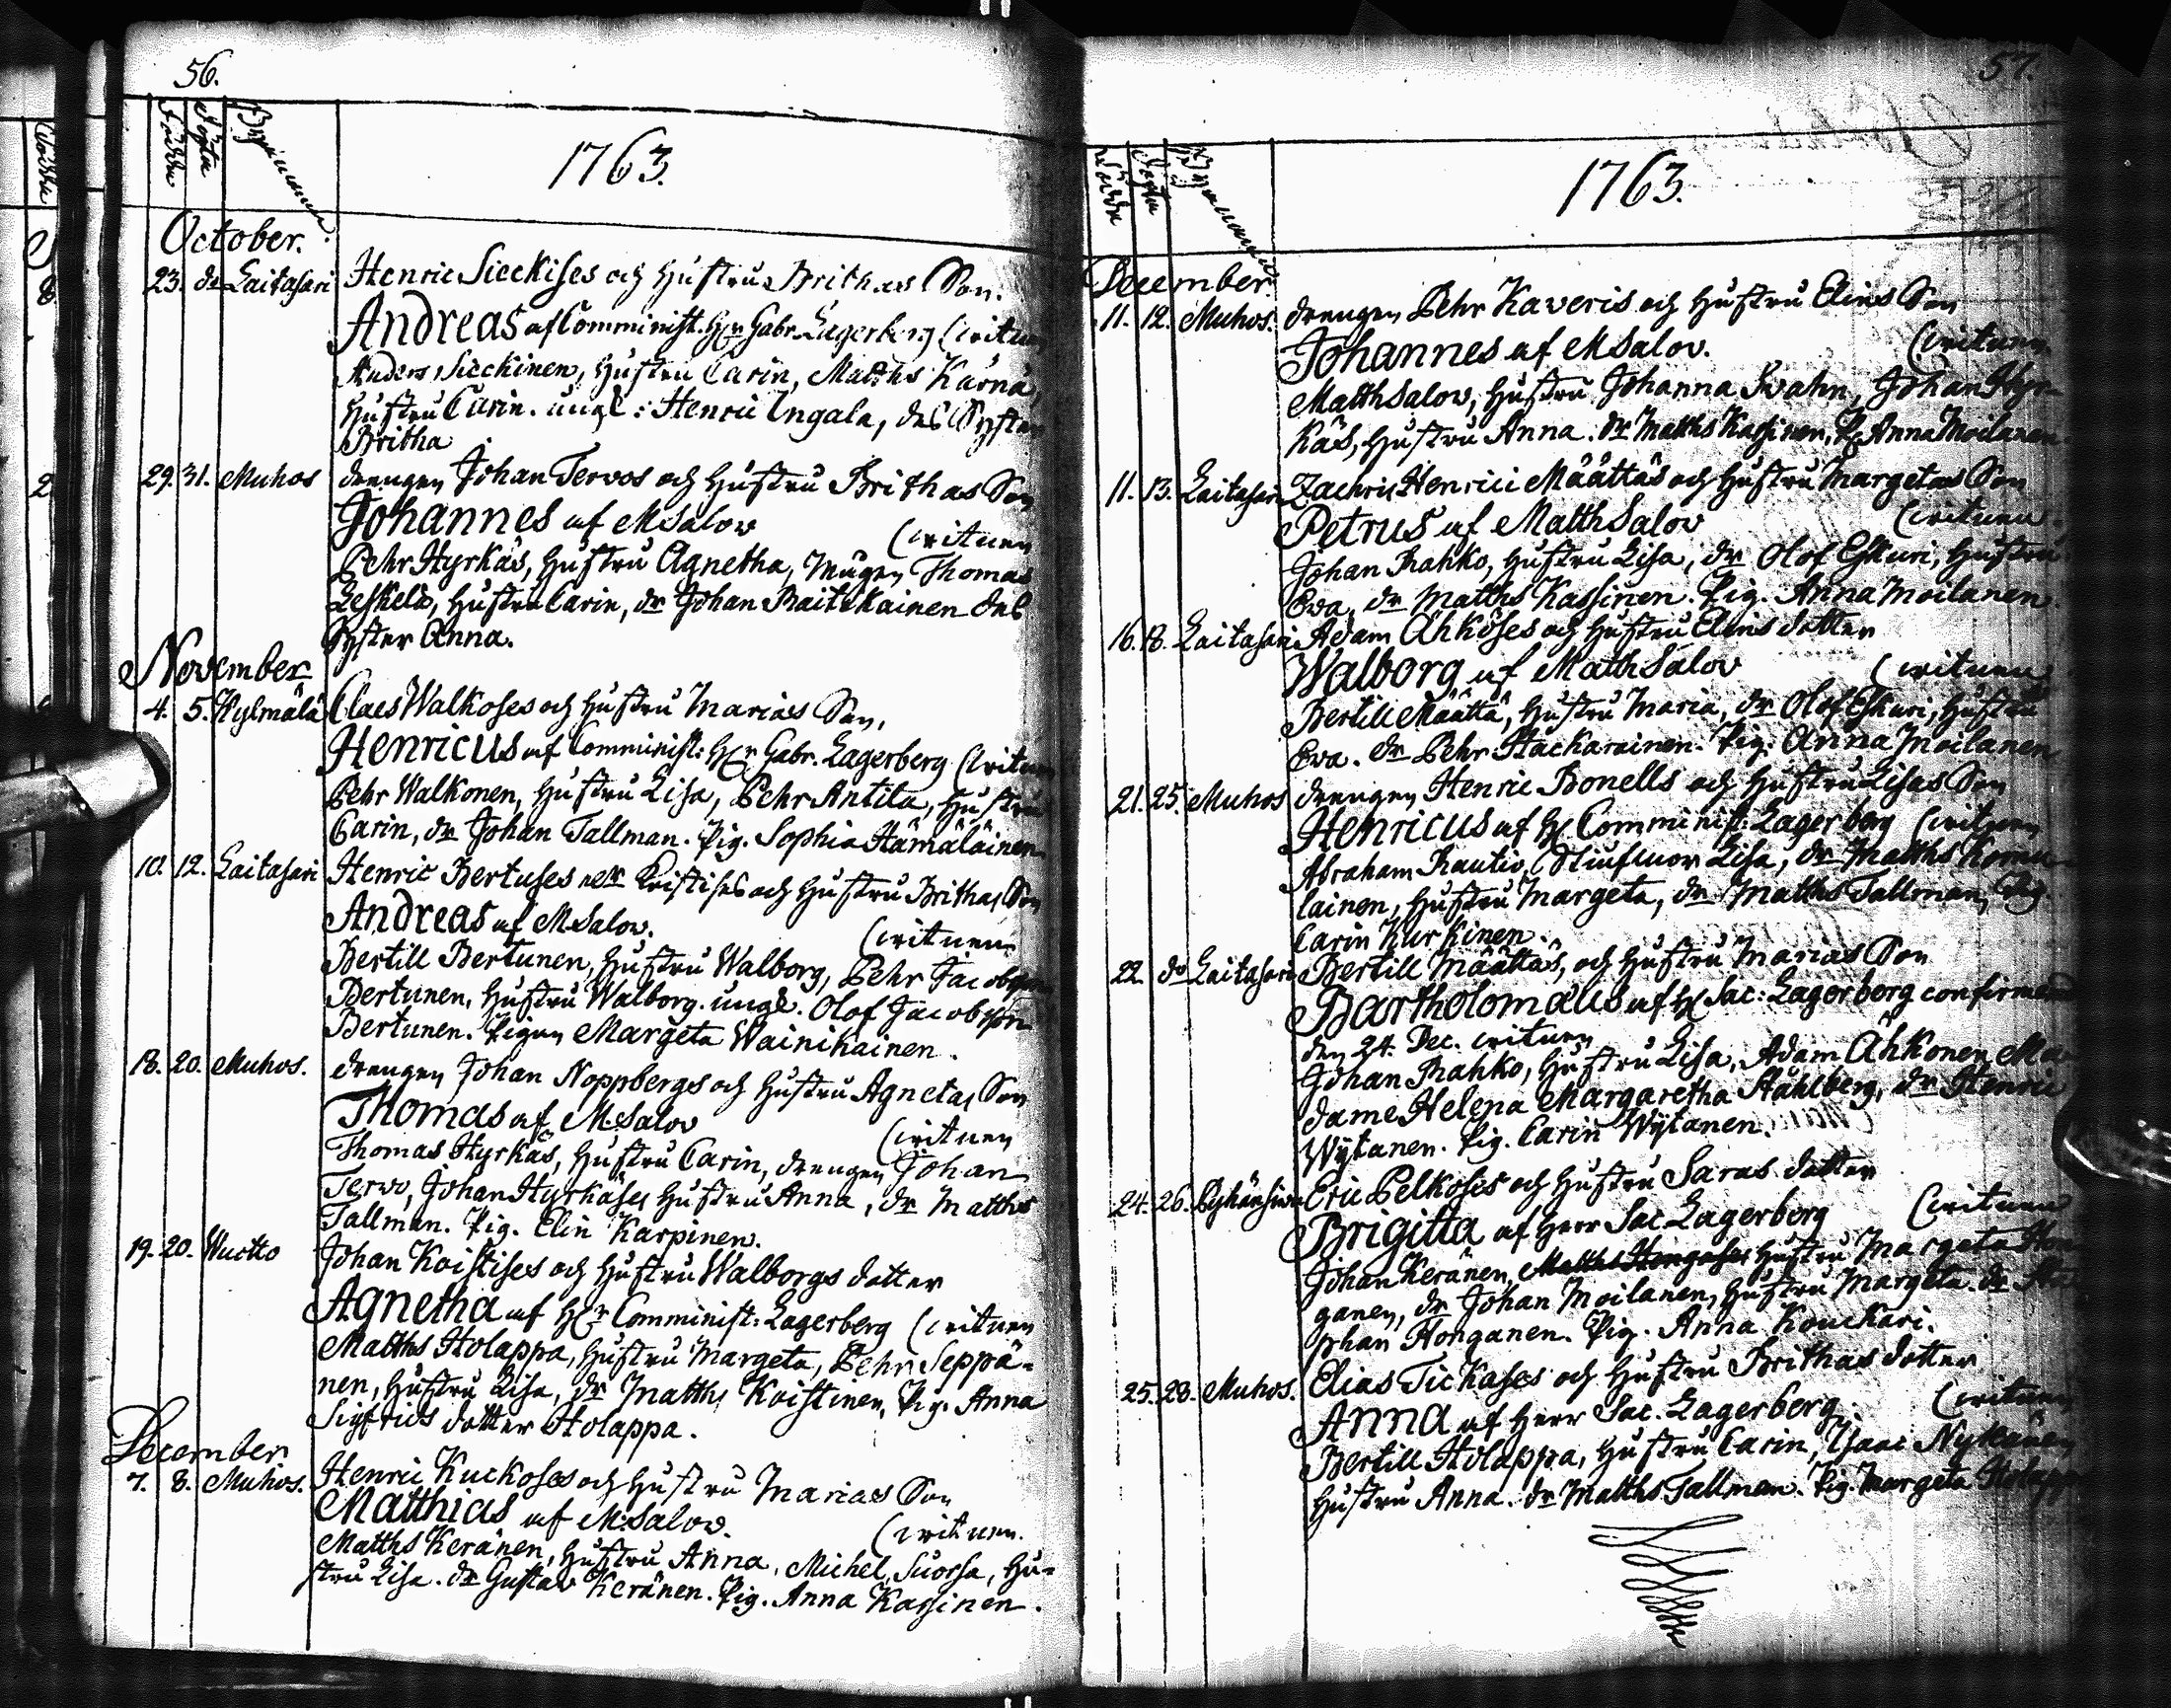 56.
Födde
Döpta
Byarnamn.
1763.
October.
23. do Laitasari Henric Sieckises och Hustru Brithas Son.
Andreas af Comminist. H:r Gabr. Lagerberg
Anders Sieckinen, Hustru Carin, Matths Kärnä,
Hustru Carin. ungk: Henric Ingala, des Syster
Britha
29. 31. Muhos drengen Johan Tervos och Hustru Brithas Son
Johannes af MSalov
Pehr Hyrkäs, Hustru Agnetha, Thomas
Leskelä, Hustru Carin, dr Johan Raitikainen des
Syster Anna.
November
4. 5. Kylmälä Claes Walkoses och Hustru Marias Son,
Henricus af Comminist: H:r Gabr. Lagerberg
Pehr Walkonen, Hustru Lisa, Pehr Antila, Hustru
Carin, dr Johan Tallman. Pig. Sophia Hämäläinen
10. 12. Laitasari Henric Bertuses och Hustru Brithas Son
Andreas af MSalov.
Bertill Bertunen, Hustru Walborg, Pehr Jacobsson
Bertunen, Hustru Walborg. ungk. Olof Jacobsson
Bertunen. Pigan Margeta Wainikainen.
18. 20. Muhos. drengen Johan Noppbergs och Hustru Agnetas Son
Thomas af M:Salov
Thomas Hyrkäs, Hustru Carin, drengen Johan
Tervo, Johan Hyrkäses Hustru Anna, dr Matths
Tallman. Pig. Elin Karpinen.
19. 20. Wuotto Johan Koistises och Hustru Walborgs dotter
Agnetha af H:r Comminist: Lagerberg
Matths Holappa, Hustru Margeta, Pehr Seppä-
nen, Hustru Lisa, dr Matths Koistinen, Pig. Anna
Sigfrids dotter Holappa.
December
7. 8. Muhos. Henric Kuckoses och Hustru Marias Son
Matthias af M:Salov.
Matths Keränen, Hustru Anna, Michel Suorsa, Hu-
stru Lisa. dr Gustav Keränen. Pig. Anna Kassinen.
57.
Födde
Döpta
Byarnamn
1763.
December.
11. 12. Muhos. drengen Pehr Kaveris och Hustru Elins Son
Johannes af MSalov.
Matth Salov, Hustru Johanna Svahn, Johan Hyr-
käs, Hustru Anna. dr Matths Kassinen, P. Anna Moilanen.
11. 13. Laitasari Zachris Henrici Määttäs och Hustru Margetas Son
Petrus af Matth Salov
Johan Rahko, Hustru Lisa, dr Olof Eskuri, Hustru
Eva, dr Matths Kassinen. Pig. Anna Moilanen.
16. 18. Laitasari Adam Ähköses och Hustru Elins dotter
Walborg af Math Salov
Bertill Määttä, Hustru Maria, dr Olof Eskuri, Hustru
Eva. dr Pehr Pig. Anna Moilanen
21. 25. Muhos drengen Henric Bonells och Hustru Lisas Son
Henricus af H. Comminist: Lagerberg
Abraham Rautio, Stiufmor Lisa, dr Matths Komu-
lainen, Hustru Margeta, dr Matths Tallman, Pig.
Carin Kurkinen.
22. do Laitasari Bertill Määttäs, och Hustru Marias Son
Bartholomæus af H. Sac: Lagerberg
den 24. Dec.
Johan Rahko, Hustru Lisa, Adam Ähkonen, Ma-
dame Helena Margaretha Ståhlberg, dr Henric
Wÿtanen. Pig. Carin Wÿtanen.
24. 26. Eric Pelkoses och Hustru Saras dotter
Brigitta af Herr Sac. Lagerberg
Johan Keränen, Hustru Margeta Hon-
ganen, dr Johan Moilanen, Hustru Margeta. dr
phan Honganen. Pig. Anna Kouckari.
25. 28. Muhos. Elias Tickases och Hustru Brithas dotter
Anna af Herr Sac. Lagerberg
Bertill Holappa, Hustru Carin, Isaac Nykänen
Hustru Anna. dr Matths Tallman. Pig. Margeta Holappa